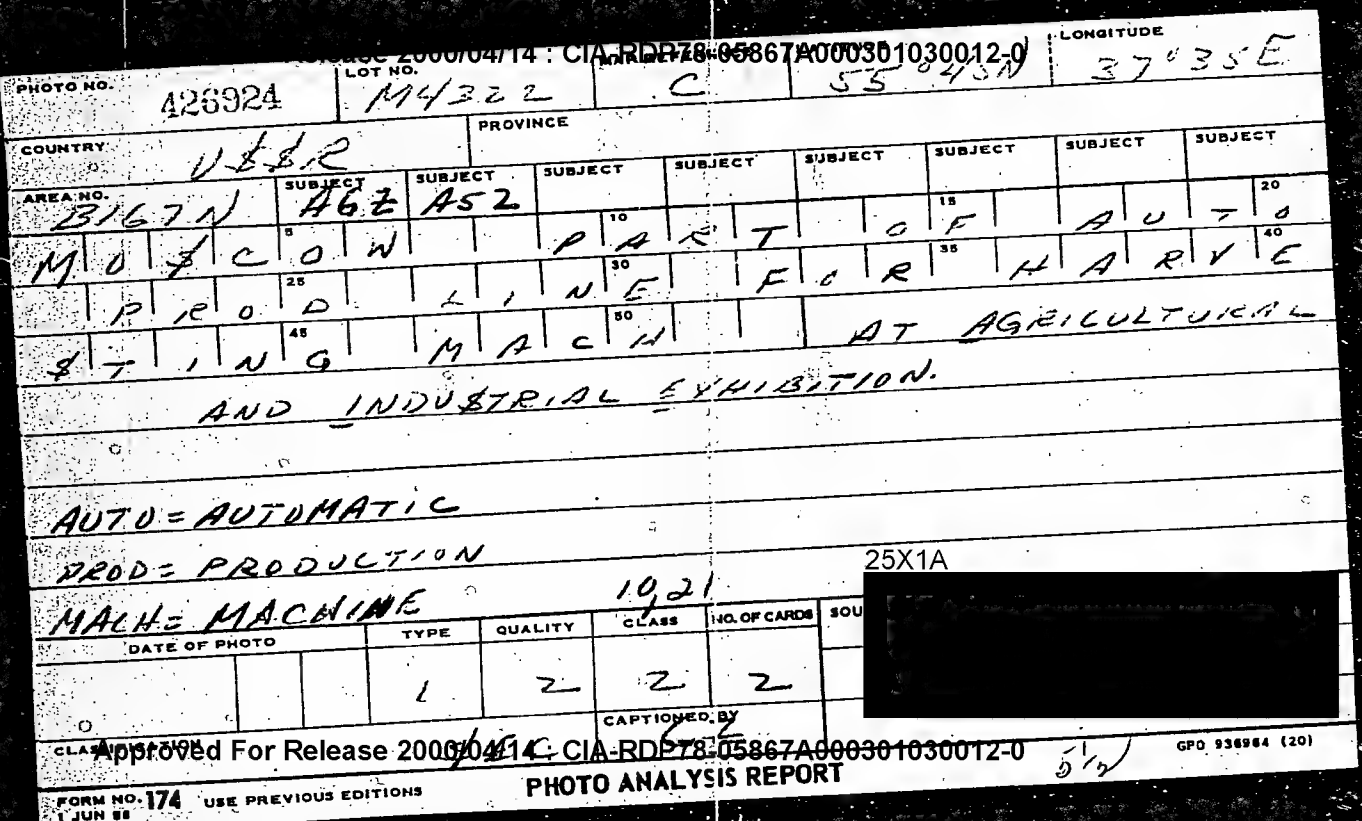 Release 2000/04/14 : CIA-RDP78-05867A000301030012-0
PHOTO NO. 426924 LOT NO. M4322 C 55°45N LONGITUDE 37°35E
COUNTRY U$$R PROVINCE
AREA NO. 3167N SUBJECT A6Z SUBJECT A52 SUBJECT SUBJECT SUBJECT SUBJECT SUBJECT SUBJECT
MO$COW PART OF AUTO 5 10 15 20
PROD LINE FOR HARVE 25 30 35 40
$TING MACH 45 50 AT AGRICULTURAL
AND INDU$TRIAL EXHIBITION.
AUTO = AUTOMATIC
PROD = PRODUCTION
25X1A
MACH = MACHINE 10,21
DATE OF PHOTO TYPE QUALITY CLASS NO. OF CARDS SOU
1 2 2 2
CAPTIONED BY
CLASSIFICATION
Approved For Release 2000/04/14 : CIA-RDP78-05867A000301030012-0
GPO 936964 (20)
PHOTO ANALYSIS REPORT
FORM NO. 174 USE PREVIOUS EDITIONS
1 JUN